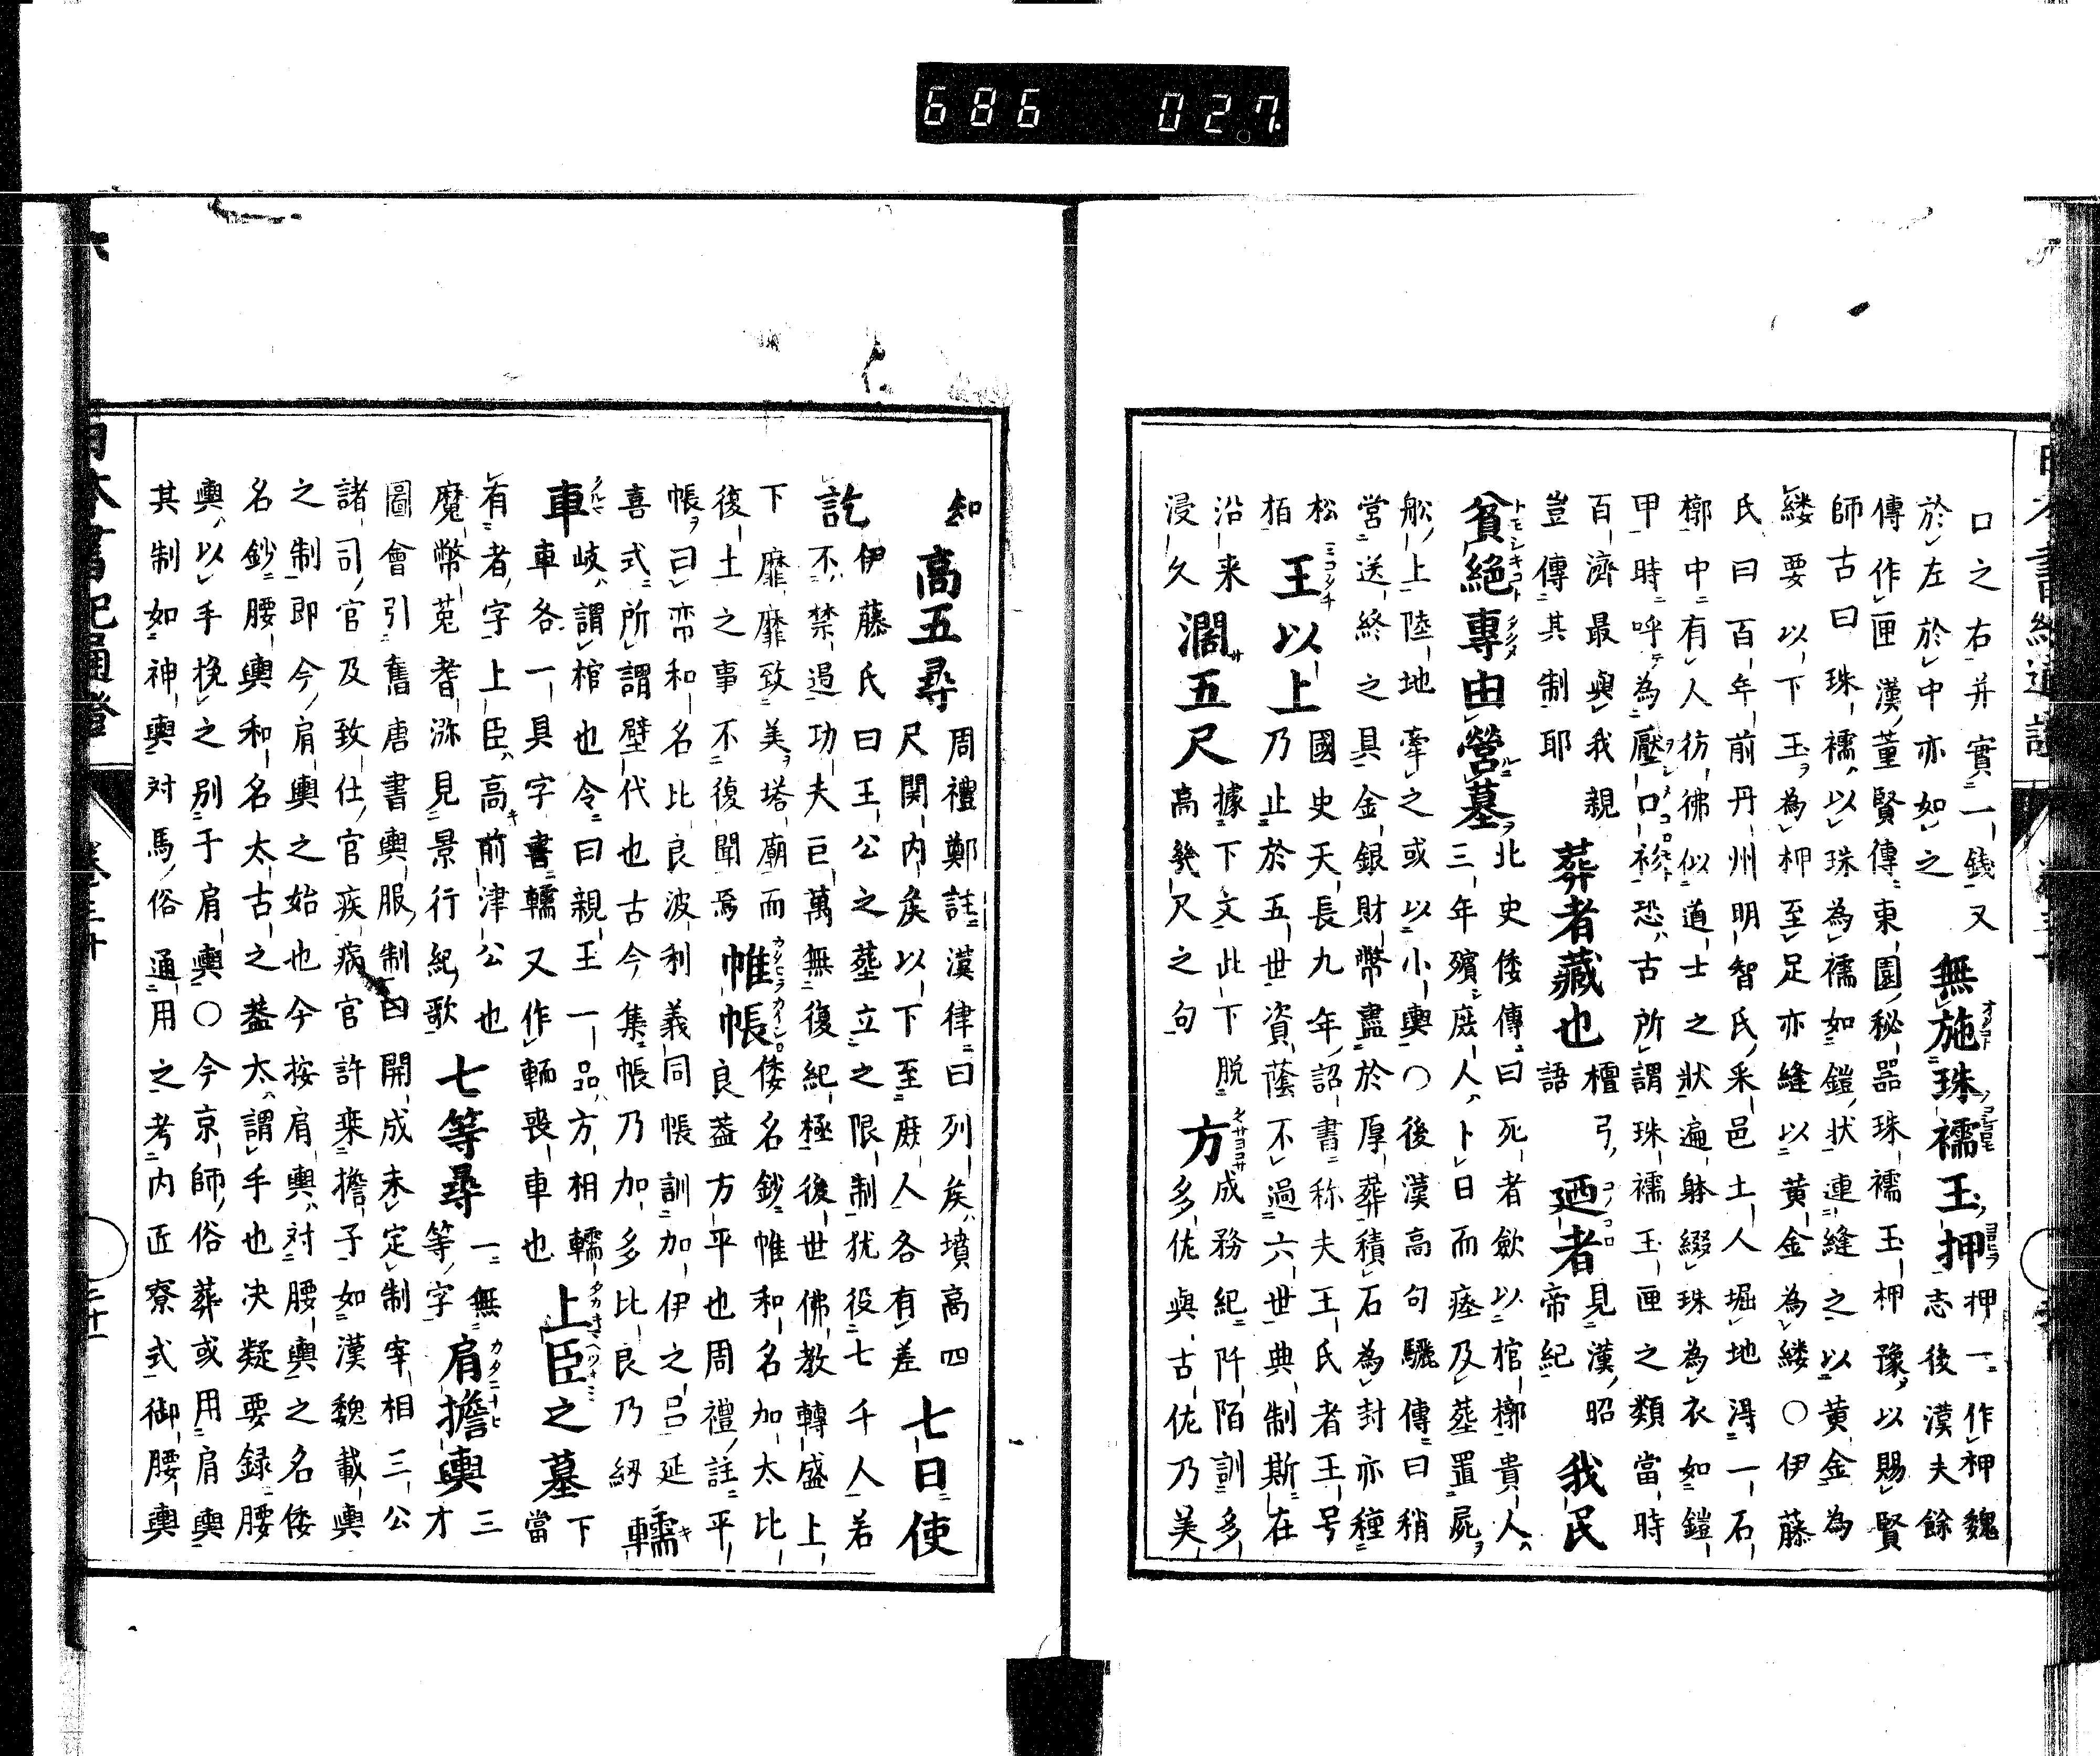 口之右并實一錢又
於左於中亦如之
無施珠襦玉押
押一作柙魏
志後漢夫餘
傳作匣漢董賢傳東園秘器珠襦玉柙豫以賜賢
師古曰珠襦以珠為襦如鎧狀連縫之以黄金為
縷要以下玉為柙至足亦縫以黄金為縷〇伊藤
氏曰百年前丹州明智氏采邑土人堀地得一石
槨中有人彷彿似道士之狀遍躰綴珠為衣如鎧
甲時呼為壓口衫恐古所謂珠襦玉匣之類當時
百濟最與我親
豈傳其制耶
葬者藏也
檀弓
語
廼者
見漢昭
帝紀
我民
貧絕專由營墓
北史倭傳曰死者歛以棺槨貴人
三年殯庶人卜日而瘞及葬置屍
舩上陸地牽之或以小輿〇後漢高句驪傳曰稍
營送終之具金銀財幣盡於厚葬積石為封亦種
松
栢
王以上
國史天長九年詔書称夫王氏者王号
乃止於五世資蔭不過六世典制斯在
沿来
浸久
濶五尺
據下文此下脱
高幾尺之句
方
成務紀阡陌訓多
多佐與古佐乃美
知
高五尋
周禮鄭註漢律曰列矦墳高四
尺関内矦以下至庶人各有差
七日使
訖
伊藤氏曰王公之葬立之限制犹役七千人若
不禁過功夫巨萬無復紀極後世佛教轉盛上
下靡靡致美塔廟而
復土之事不復聞焉
帷帳
倭名鈔帷和名加太比
良蓋方平也周禮註平
帳曰帟和名比良波利義同帳訓加伊之呂延
喜式所謂壁代也古今集帳乃加多比良乃
轜
車
岐謂棺也令曰親王一品方相轜
車各一具字書轜又作輀喪車也
上臣之墓
下
當
有者字上臣高前津公也
魔幣菟耆瀰見景行紀歌
七等尋
一無
等字
肩擔輿
三
才
圖會引舊唐書輿服制曰開成末定制宰相三公
諸司官及致仕官疾病官許乗擔子如漢魏載輿
之制即今肩輿之始也今按肩輿対腰輿之名倭
名鈔腰輿和名太古之蓋太謂手也决疑要録腰
輿以手挽之別于肩輿〇今京師俗葬或用肩輿
其制如神輿対馬俗通用之考内匠寮式御腰輿
日本書紀通證
686 027